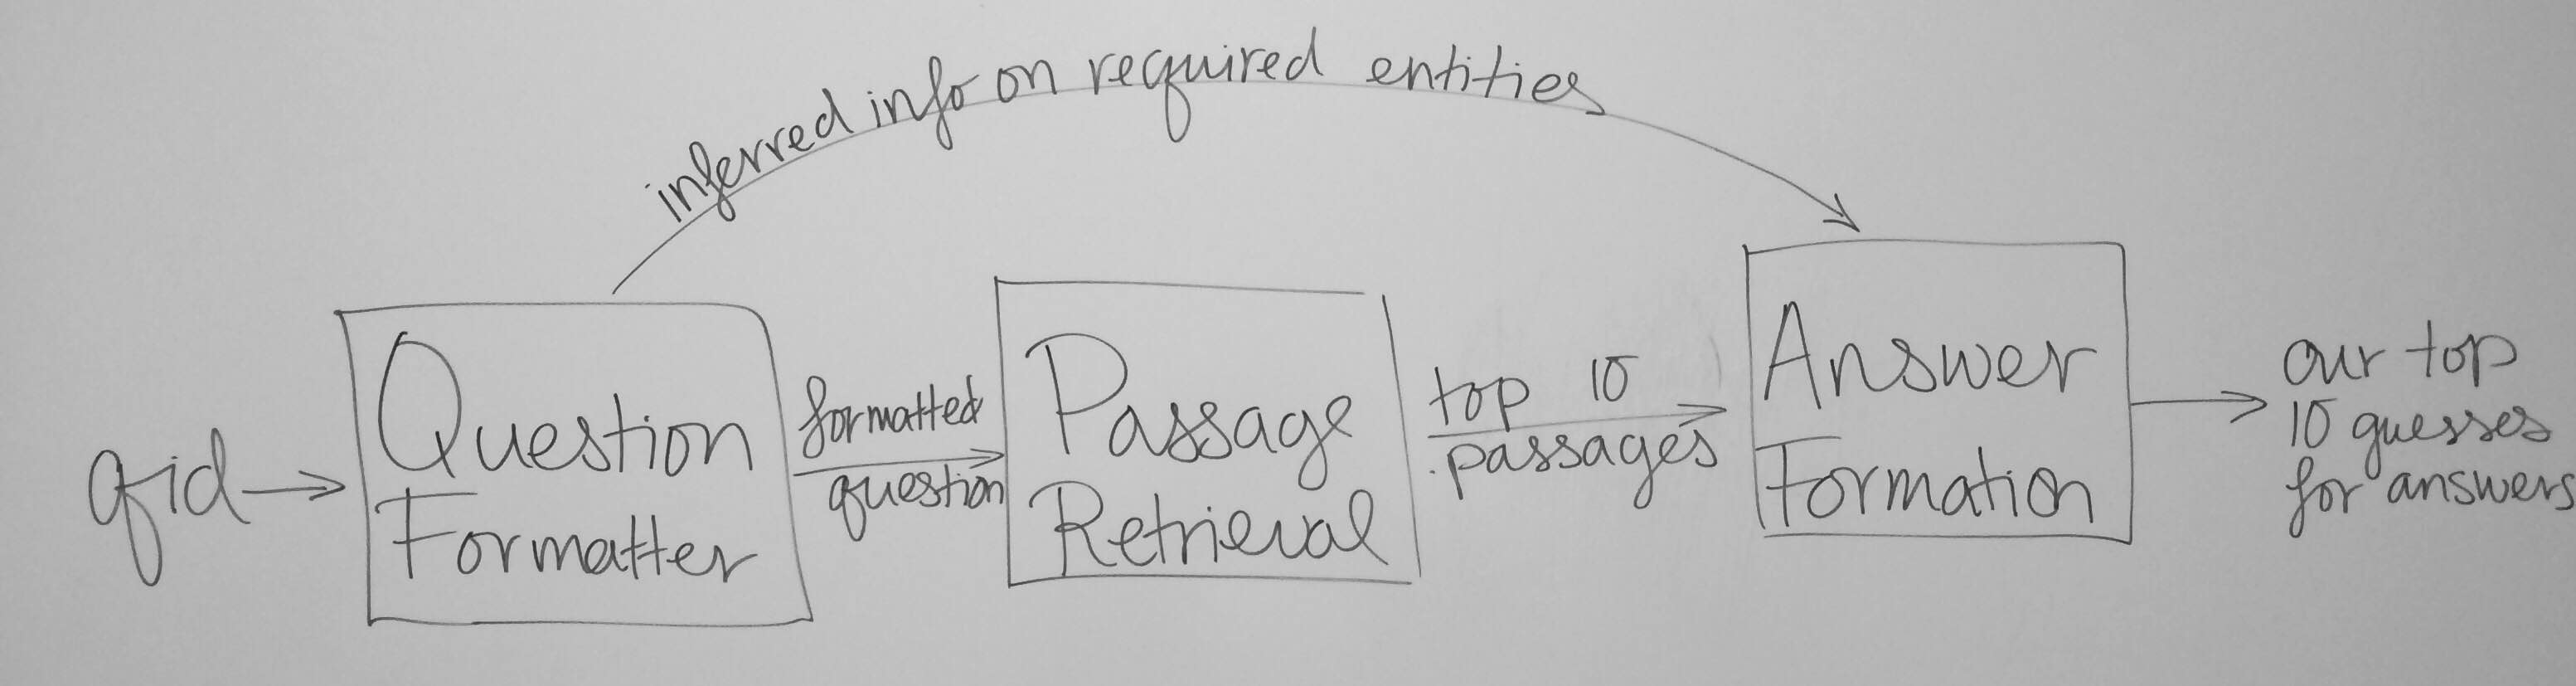 inferred info on required entities
qid
Question
Formatter
formatted
question
Passage
Retrieval
top 10
passages
Answer
Formation
our top
10 guesses
for answers